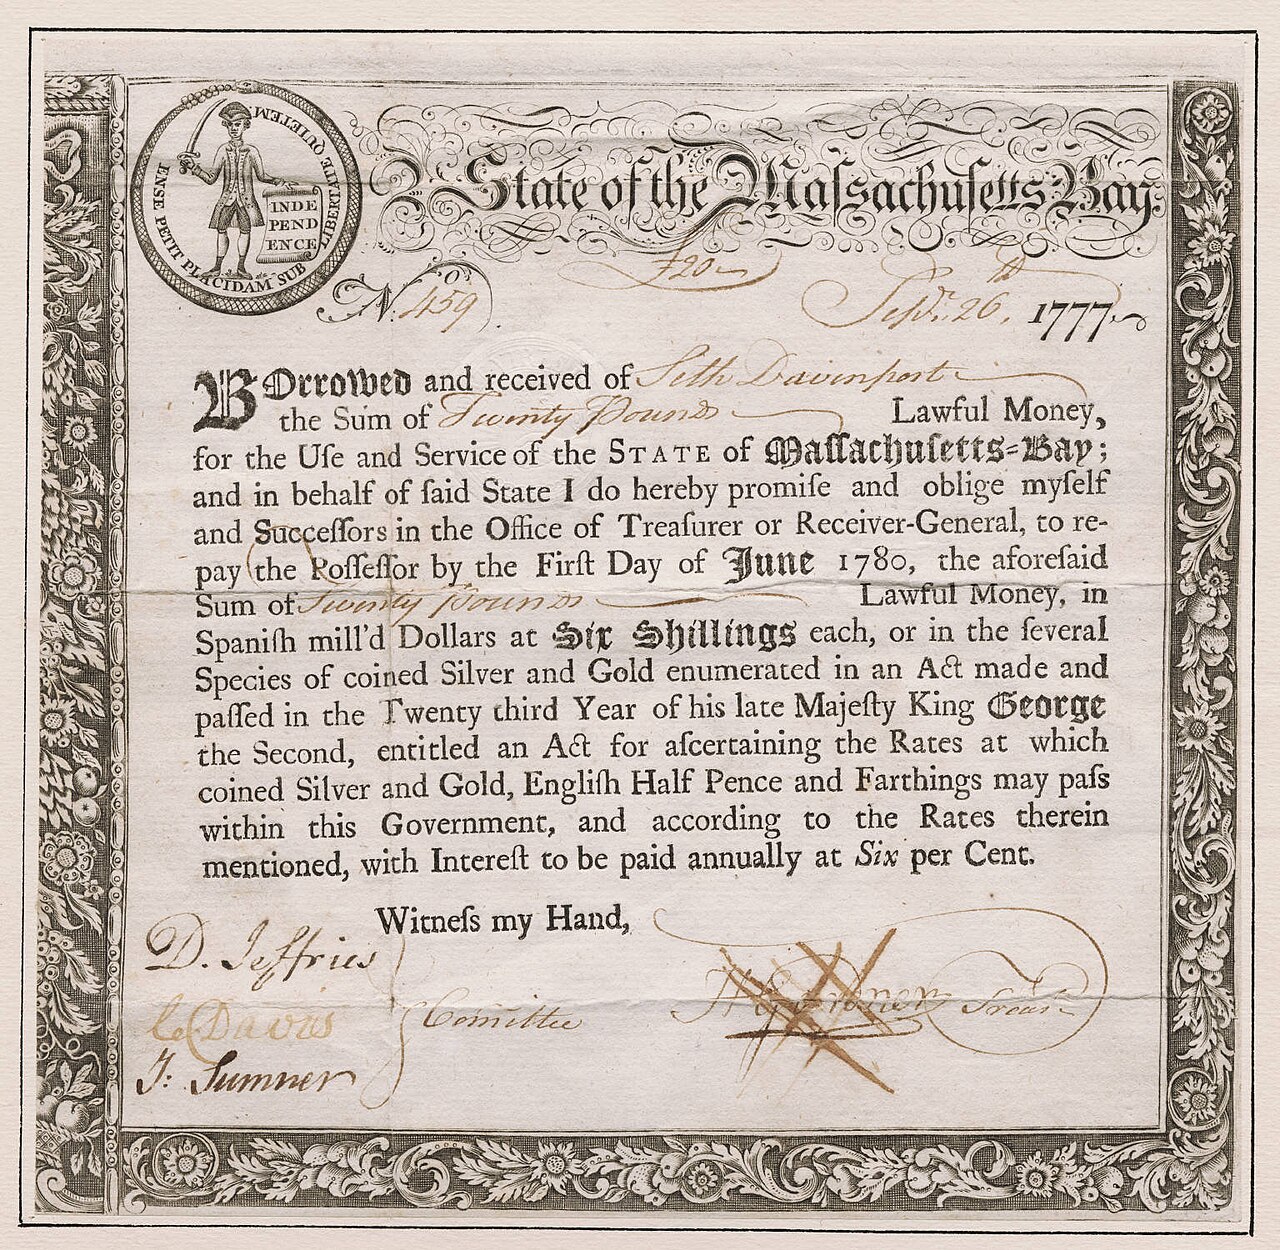 ENSE PETIT PLACIDAM SUB LIBERTATE QUIETEM
INDE
PEND
ENCE
State of the Maſſachuſetts Bay.
£20
No. 459
Sepr. 26th, 1777
BOrrowed and received of Seth Davenport
the Sum of Twenty Pounds Lawful Money,
for the Uſe and Service of the STATE of Maſſachuſetts-Bay;
and in behalf of ſaid State I do hereby promiſe and oblige myſelf
and Succeſſors in the Office of Treaſurer or Receiver-General, to re-
pay the Poſſeſſor by the Firſt Day of June 1780, the aforeſaid
Sum of Twenty Pounds Lawful Money, in
Spaniſh mill'd Dollars at Six Shillings each, or in the ſeveral
Species of coined Silver and Gold enumerated in an Act made and
paſſed in the Twenty third Year of his late Majeſty King George
the Second, entitled an Act for aſcertaining the Rates at which
coined Silver and Gold, Engliſh Half Pence and Farthings may paſs
within this Government, and according to the Rates therein
mentioned, with Intereſt to be paid annually at Six per Cent.
Witneſs my Hand,
D. Jeffries
Davis
Comittee
H Gardner Treasr
J: Sumner